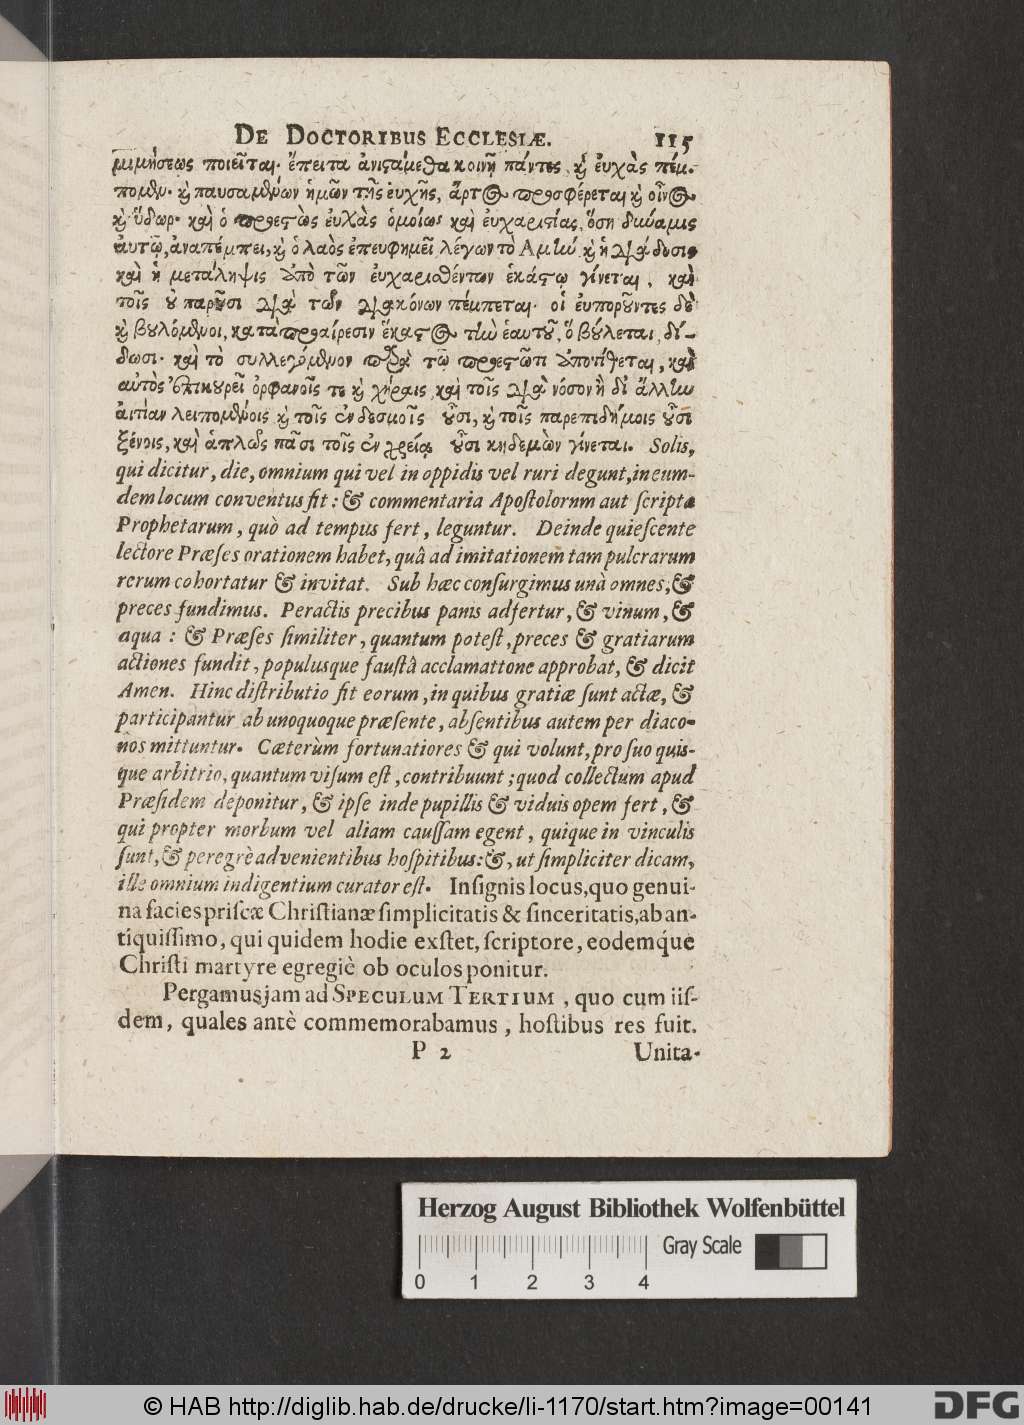 DE DOCTORIBUS ECCLESIÆ. 115
μιμήσεως ποιεῖται. ἔπειτα ἀνιϛάμεθα κοινῇ πάντες, καὶ ἐυχὰς πέμ-
πομεν. καὶ παυσαμένων ἡμῶν τῆς ἐυχῆς, ἄρτος προσφέρεται καὶ οἶνος
καὶ ὕδωρ. καὶ ὁ προεϛὼς ἐυχὰς ὁμοίως καὶ ἐυχαριϛίας, ὅση δύναμις
ἀυτῷ, ἀναπέμπει, καὶ ὁ λαὸς ἐπευφημεῖ λέγων τὸ Αμήν. καὶ ἡ διάδοσις
καὶ ἡ μετάληψις ἀπὸ τῶν ἐυχαριϛθέντων ἑκάϛῳ γίνεται, καὶ
τοῖς ȣ παρȣσι διὰ τῶν διακόνων πέμπεται. οἱ ἐυπορȣντες δὲ
καὶ βȣλόμενοι, κατὰ προαίρεσιν ἕκαϛος τὴν ἑαυτȣ, ὃ βȣλεται, δί-
δωσι. καὶ τὸ συλλεγόμενον παρὰ τῷ προεϛῶτι ἀποτίθεται, καὶ
αὐτὸς ἐπικȣρεῖ ὀρφανοῖς τε καὶ χήραις, καὶ τοῖς διὰ νόσον ἢ δι ἄλλην
ἀιτίαν λειπομένοις καὶ τοῖς ἐν δεσμοῖς ȣσι, καὶ τοῖς παρεπιδήμοις ȣσι
ξένοις, καὶ ἁπλῶς πᾶσι τοῖς ἐν χρείᾳ ȣσι κηδεμὼν γίνεται. Solis,
qui dicitur, die, omnium qui vel in oppidis vel ruri degunt, in eum-
dem locum conventus fit: & commentaria Apoſtolorum aut ſcripta
Prophetarum, quò ad tempus fert, leguntur. Deinde quieſcente
lectore Præſes orationem habet, quâ ad imitationem tam pulcrarum
rerum cohortatur & invitat. Sub hæc conſurgimus unà omnes, &
preces fundimus. Peractis precibus panis adfertur, & vinum, &
aqua: & Præſes ſimiliter, quantum poteſt, preces & gratiarum
actiones fundit, populusque fauſtâ acclamattone approbat, & dicit
Amen. Hinc diſtributio fit eorum, in quibus gratiæ ſunt actæ, &
participantur ab unoquoque præſente, abſentibus autem per diaco-
nos mittuntur. Cæterùm fortunatiores & qui volunt, pro ſuo quis-
que arbitrio, quantum viſum eſt, contribuunt; quod collectum apud
Præſidem deponitur, & ipſe inde pupillis & viduis opem fert, &
qui propter morbum vel aliam cauſſam egent, quique in vinculis
ſunt, & peregrè advenientibus hoſpitibus: &, ut ſimpliciter dicam,
ille omnium indigentium curator eſt. Inſignis locus, quo genui-
na facies priſcæ Chriſtianæ ſimplicitatis & ſinceritatis, ab an-
tiquiſſimo, qui quidem hodie exſtet, ſcriptore, eodemq́ue
Chriſti martyre egregiè ob oculos ponitur.
Pergamus jam ad SPECULUM TERTIUM, quo cum iiſ-
dem, quales antè commemorabamus, hoſtibus res fuit.
P 2 Unita-
Herzog August Bibliothek Wolfenbüttel
Gray Scale
0 1 2 3 4
© HAB http://diglib.hab.de/drucke/li-1170/start.htm?image=00141
DFG